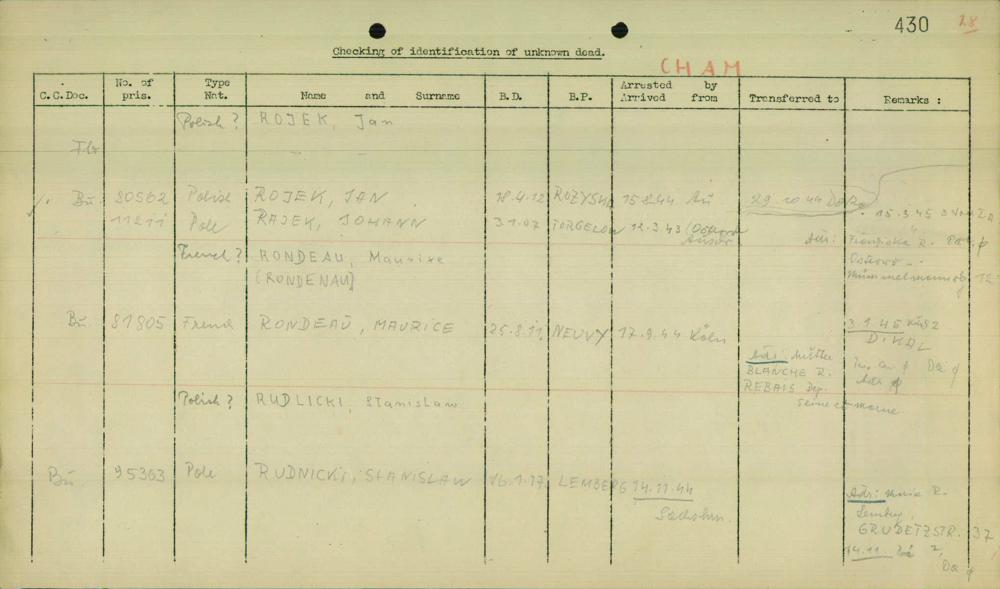 430 28
Checking of identification of unknown dead.
CHAM
C.C.Doc. No. of pris. Type Nat. Name and Surname B.D. B.P. Arrested by Arrived from Transferred to Remarks :
Polish? ROJEK, Jan
Flo
Bu. 80562 ROJEK, JAN 18.4.12 15.8.44 Au 29.10.44
11211 Pole RAJEK, JOHANN 3.1.07 TORGELOW 12.3.43 15.3.45
French? RONDEAU, Maurice Adr:
(RONDENAU) 12
Bu. 81805 French RONDEAU, MAURICE 25.8.11 NEUVY 17.9.44 Köln 3.1.45
DIKAL
Adr: Mutter
BLANCHE R.
REBAIS Dep.
Seine et marne
Polish? RUDLICKI, Stanislaw
Bu. 95363 Pole RUDNICKI, STANISLAW 16.1.17 LEMBERG 14.11.44
Sachshn.
Adr: Maria R.
Lemberg,
GRUDETZSTR. 37
14.11.